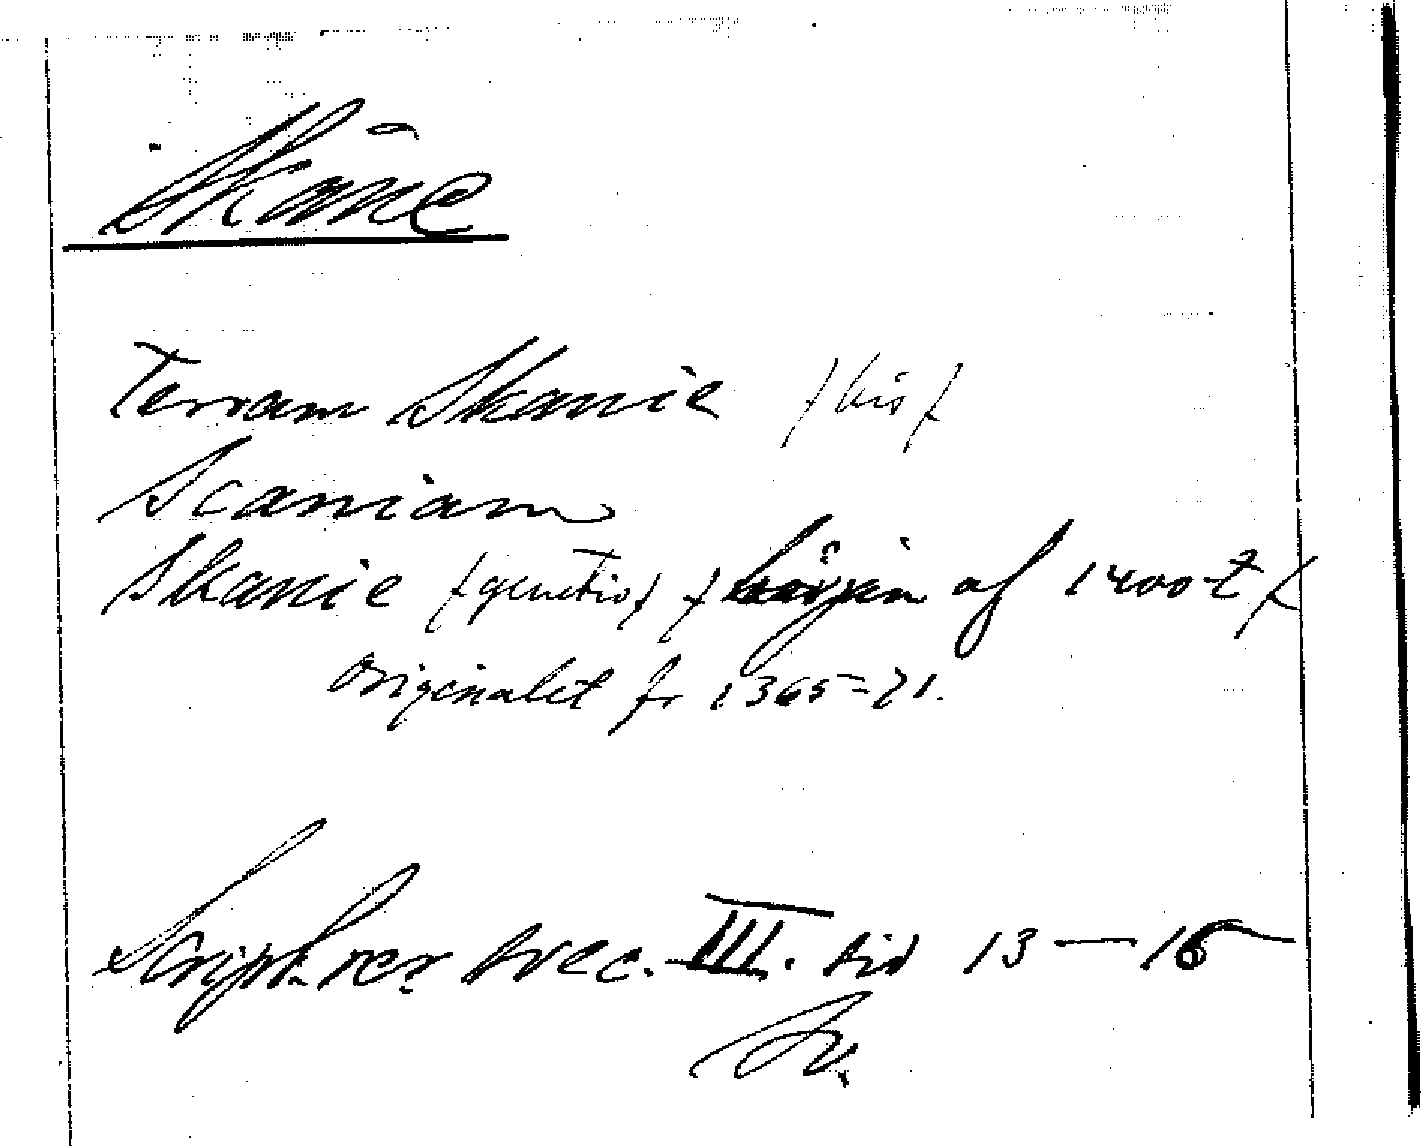 Skåne
Terram Skanie /bis/
Scaniam
Skanie /genetiv/ / början af 1400-t/
Originalet fr 1365-71.
Script. rer. svec. III. sid 13—16